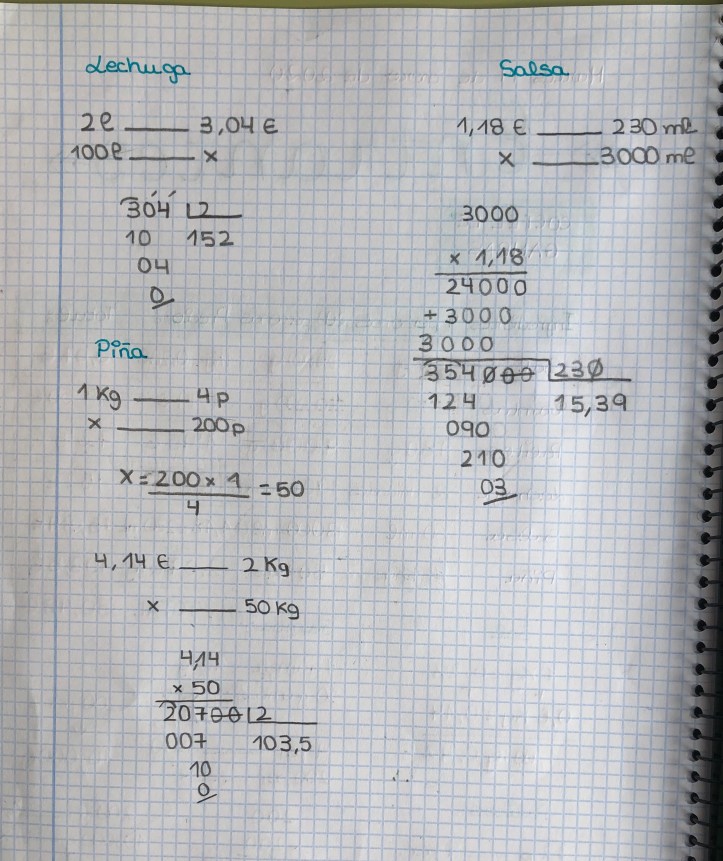 Lechuga
2l —— 3,04 €
100l —— x
304 | 2
10 152
04
0
Piña
1 Kg —— 4p
x —— 200p
x = 200 x 1 = 50
4
4,14 € —— 2 Kg
x —— 50 Kg
4,14
x 50
20700 | 2
007 103,5
10
0
Salsa
1,18 € —— 230 ml
x —— 3000 ml
3000
x 1,18
24000
+ 3000
3000
354000 | 230
124 15,39
090
210
03